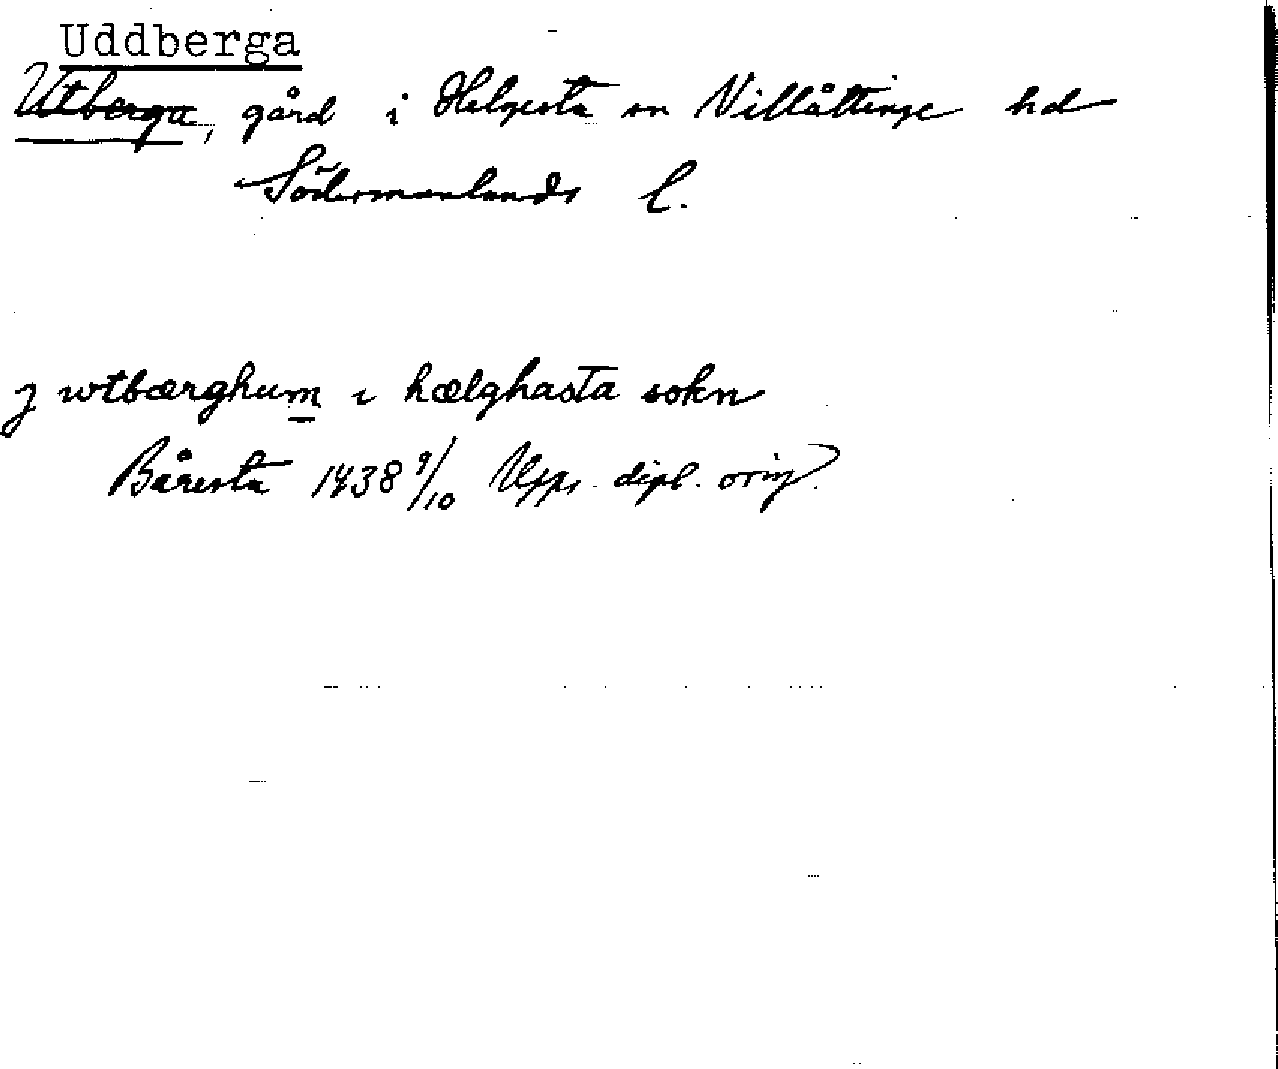 Uddberga
Utberga, gård i Helgesta sn Villåttinge hd
Södermanlands l.
j wtbærghum i hælghasta sokn
Båresta 1438 9/10 Upps. dipl. orig.